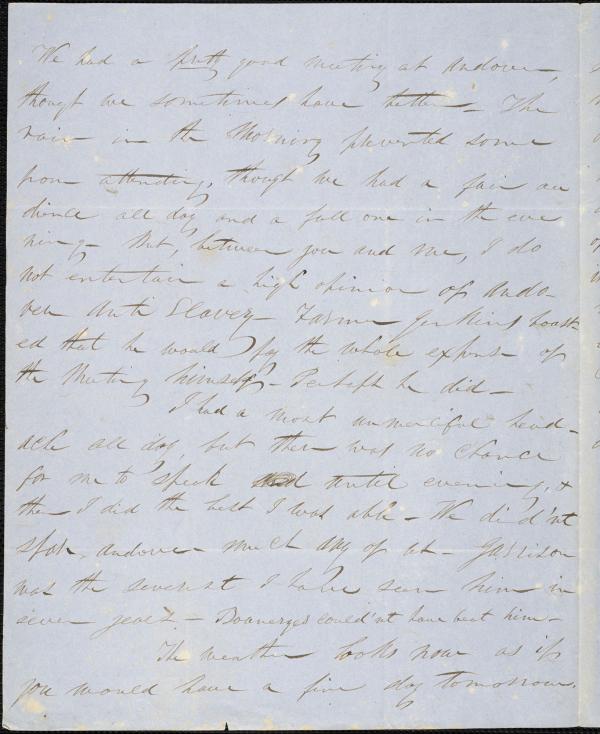 We had a pretty good meeting at Andover,
though we sometimes have better - The
rain in the Morning prevented some
from attending, though we had a fair au
dience all day and a full one in the eve
ning - But, between you and me, I do
not entertain a high opinion of Ando-
ver Anti Slavery - Farmer Jenkins boast-
ed that he would pay the whole expense of
the Meeting himself - Perhaps he did -
I had a most unmerciful head-
ache all day, but there was no chance
for me to speak until evening, &
then I did the best I was able - We did'nt
Andover much any of us - Garrison
was the severest I have seen him in
seven years - Boanerges could'nt have beat him -
The weather looks now as if
you would have a fine day tomorrow.